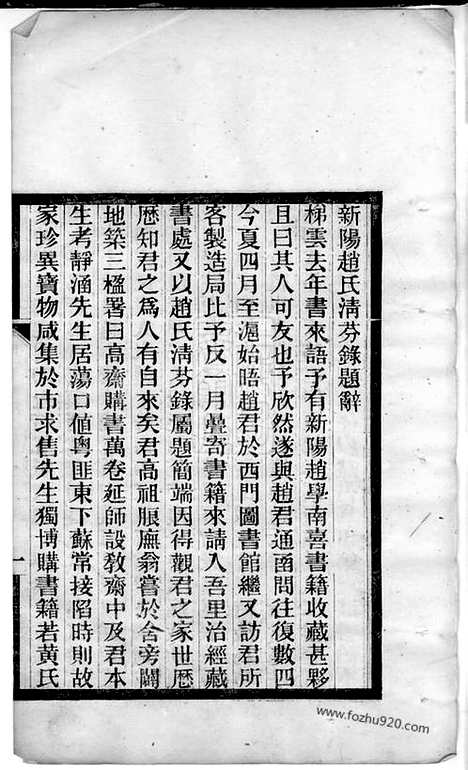 新陽趙氏清芬錄題辭
梯雲去年書來語予有新陽趙學南喜書籍收藏甚夥
且曰其人可友也予欣然遂與趙君通函問往復數四
今夏四月至滬始晤趙君於西門圖書館繼又訪君所
客製造局比予反一月疊寄書籍來請入吾里治經藏
書處又以趙氏清芬錄屬題簡端因得觀君之家世歷
歷知君之爲人有自來矣君高祖脹廡翁嘗於舍旁闢
地築三楹署曰高齋購書萬卷延師設敎齋中及君本
生考靜涵先生居蕩口値粵匪東下蘇常接陷時則故
家珍異寶物咸集於市求售先生獨博購書籍若黃氏
一
www.fozhu920.com